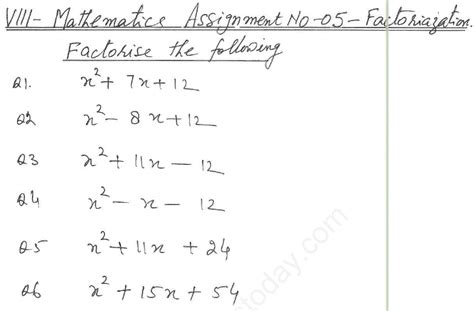 VIII- Mathematics Assignment No-05-Factoriazation.
Factorise the following
Q1. x² + 7x + 12
Q2 x² - 8x + 12
Q3 x² + 11x - 12
Q4 x² - x - 12
Q5 x² + 11x + 24
Q6 x² + 15x + 54
today.com